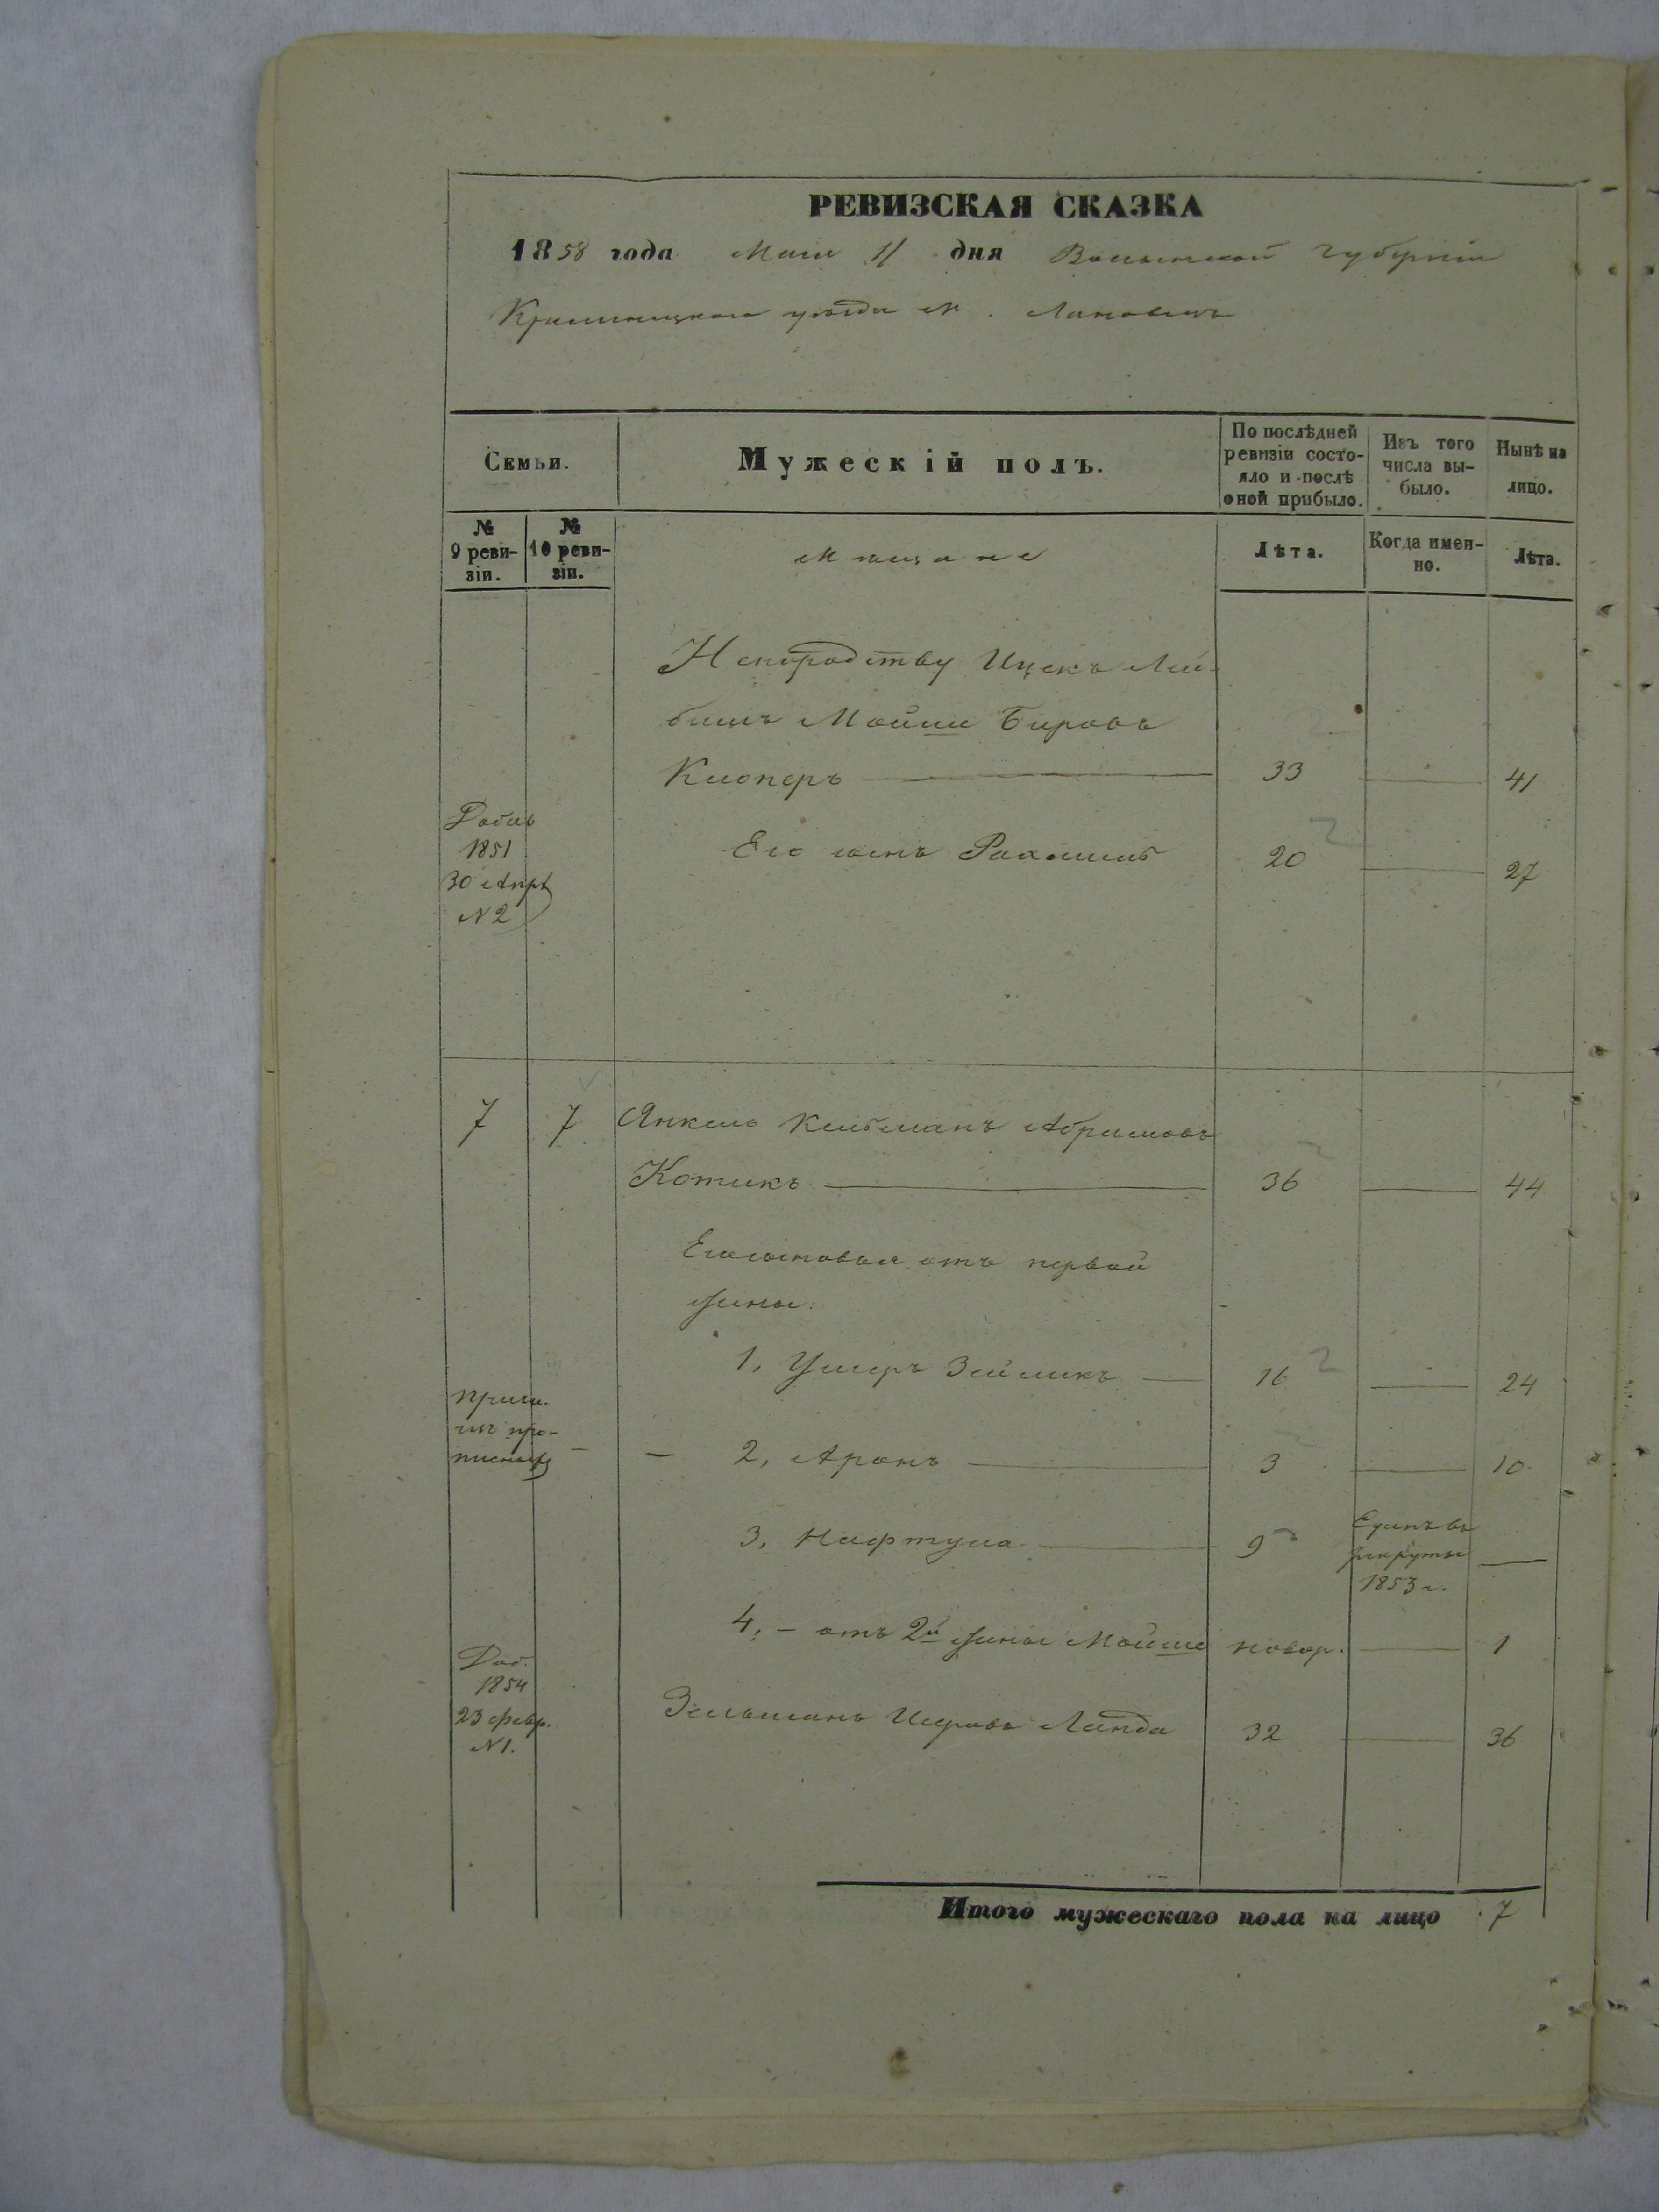 РЕВИЗСКАЯ СКАЗКА
1858 года Мая 11 дня Волынской губерніи
Кременецкаго уѣзда м. Лановецъ
Семьи.
Мужескій полъ.
По послѣдней ревизіи состо-
яло и послѣ оной прибыло.
Изъ того числа вы-
было.
Нынѣ на лицо.
№ 9 реви-
зіи.
№ 10 реви-
зіи.
Мѣщане
Лѣта.
Когда имен-
но.
Лѣта.
Ицекъ Лей-
бишъ Мойше Беровъ
Клоперъ 33 41
Добав
1851
30 Апр
N 2
Его сынъ Рахмиль 20 27
7 7 Янкель Кельманъ Абрамовъ
Котикъ 36 44
Его сыновья отъ первой
жены:
1, Ушеръ Зейликъ 16 24
2, Аронъ 3 10
3, Нафтула 9
рекруты
1853 г.
4, – отъ 2й жены Мойше новор. 1
Доб.
1854
23 февр.
N 1.
Зельманъ Ланда 32 36
Итого мужескаго пола на лицо 7